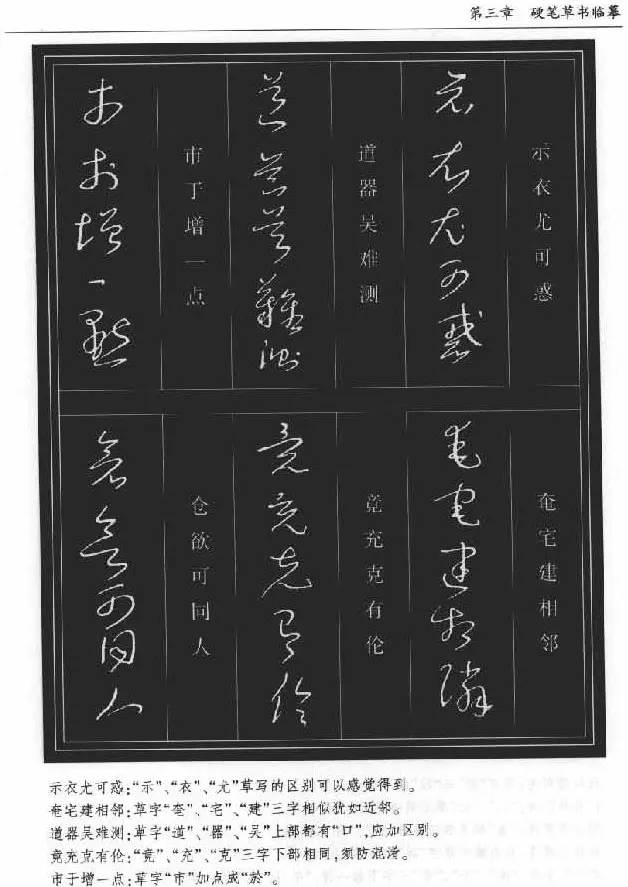 第三章 硬笔草书临摹
示衣尤可惑
示衣尤可惑
奄宅建相邻
奄宅建相隣
道器吴难测
道器吴難測
竟充克有伦
竟充克有倫
市于增一点
市於增一點
仓欲可同人
倉欲可同人
示衣尤可惑:“示”、“衣”、“尤”草写的区别可以感觉得到。
奄宅建相邻:草字“奄”、“宅”、“建”三字相似犹如近邻。
道器吴难测:草字“道”、“器”、“吴”上部都有“口”,应加区别。
竟充克有伦:“竟”、“充”、“克”三字下部相同,须防混淆。
市于增一点:草字“市”加点成“於”。